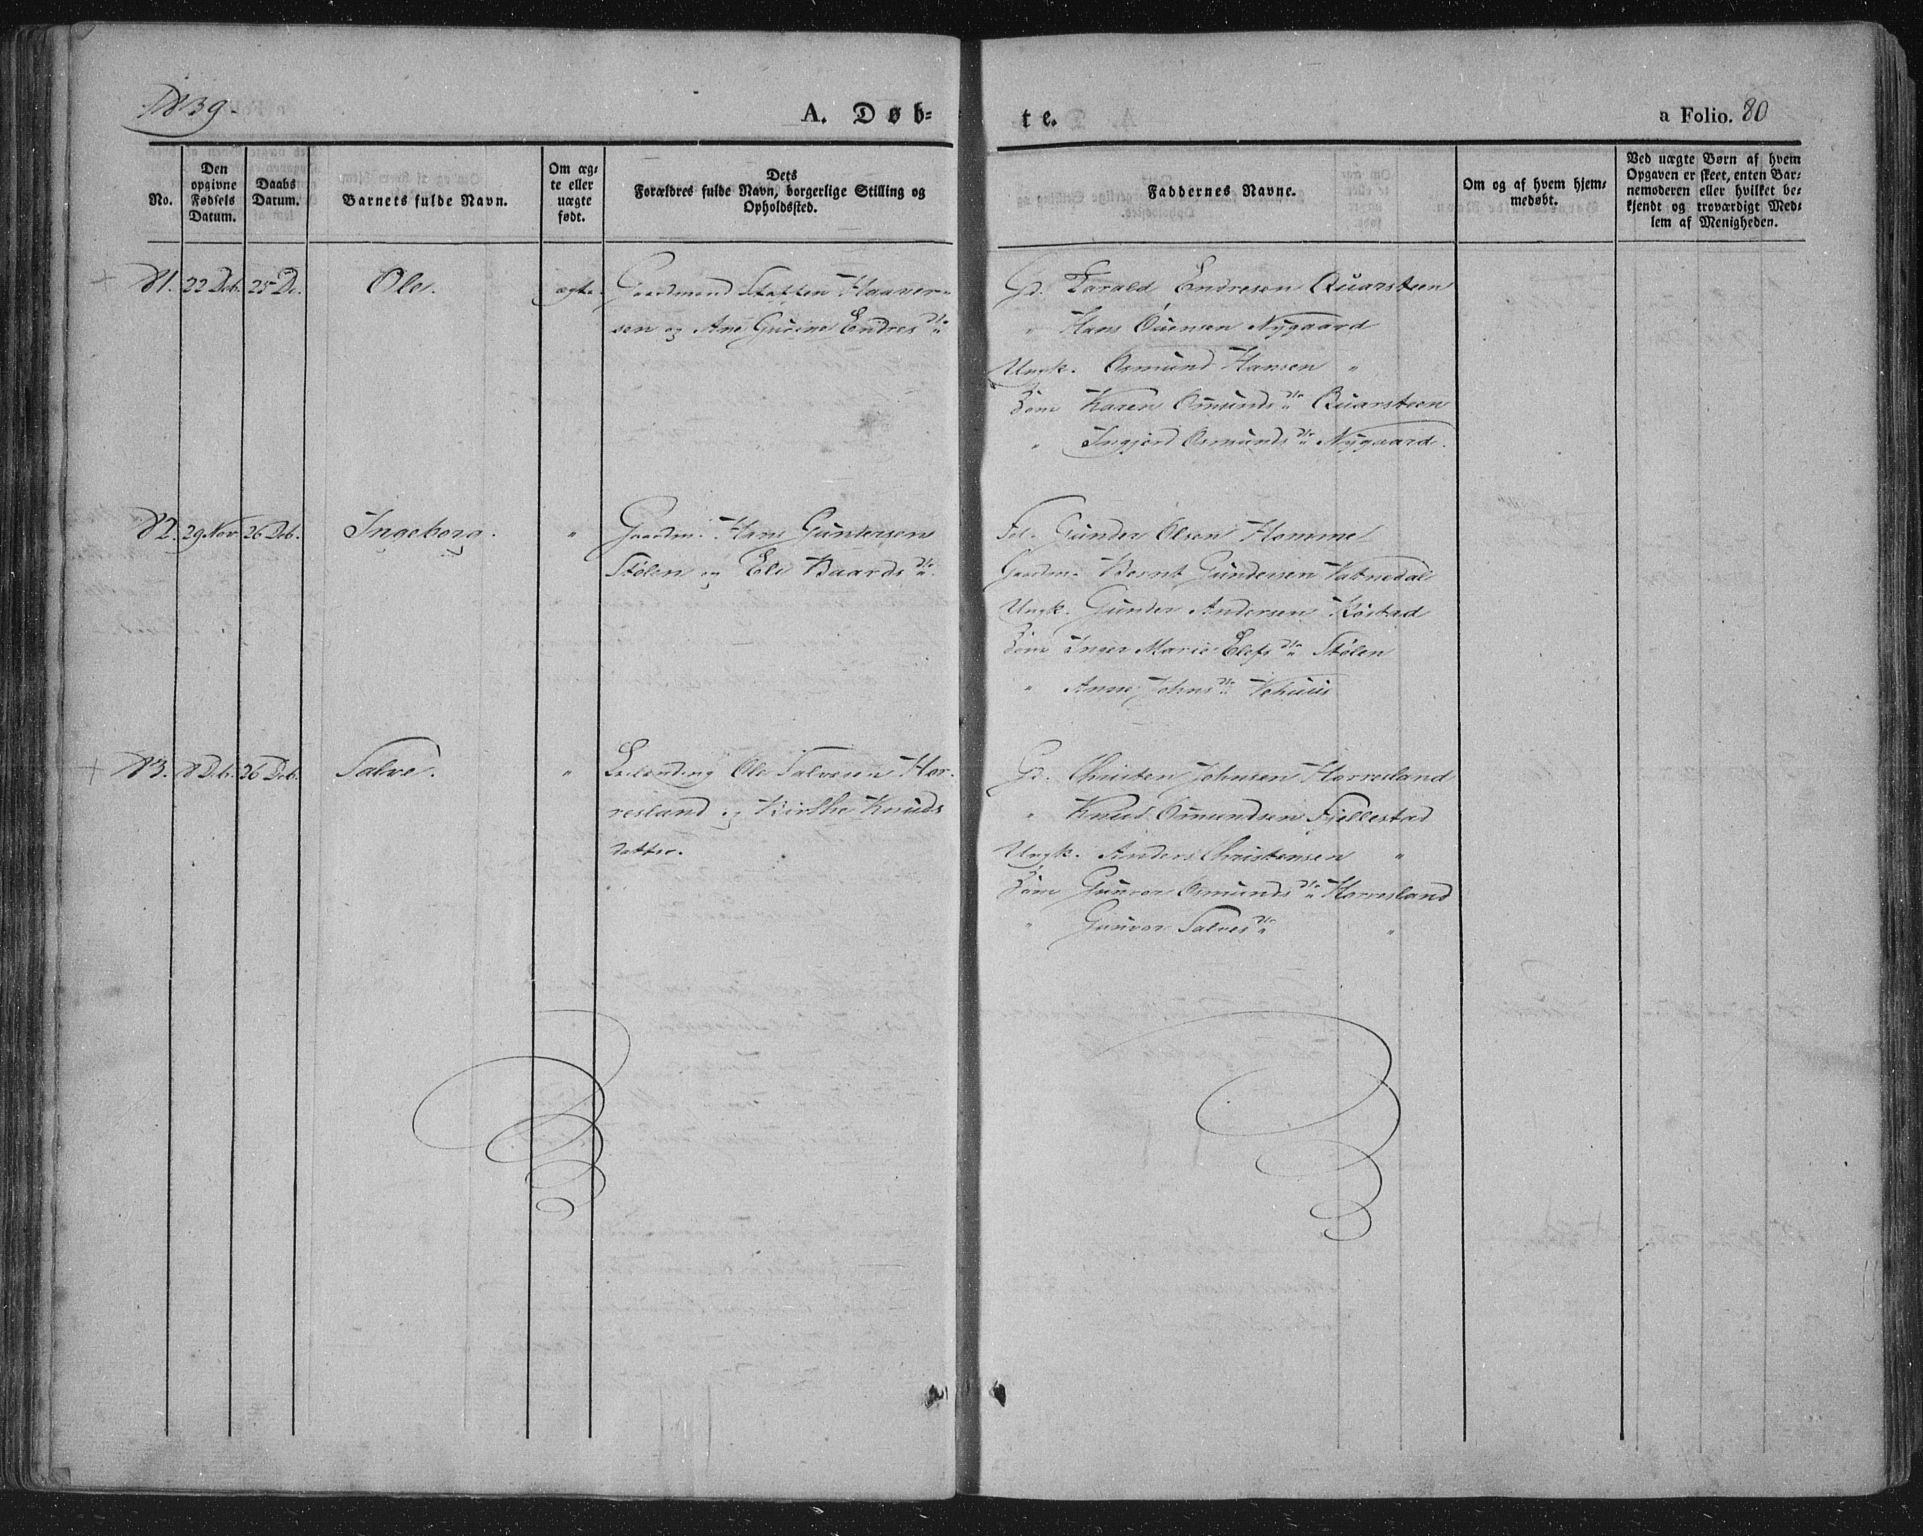 1839.
A. Døb=
te.
a Folio. 80
No.
Den
opgivne
Fødsels
Datum.
Daabs
Datum.
Barnets fulde Navn.
Om æg=
te eller
uægte
født.
Dets
Forældres fulde Navn, borgerlige Stilling og
Opholdssted.
Faddernes Navne.
Om og af hvem hjem=
medøbt.
Ved uægte Børn af hvem
Opgaven er skeet, enten Bar=
nemoderen eller hvilket be=
kjendt og troværdigt Med=
lem af Menigheden.
81. 22 Dcb. 25 D. Ole. ægte. Gaardmand Staffen Haaver=
sen og Ane Gurine Endres dtr
Gd. Tarald Endresen Quarsteen
" Hans Ouensen Nygaard
Ungk. Osmund Hansen "
Karen Osmunds dtr Quarsteen
" Ingjerd Osmunds dtr Nygaard.
82. 29 Nov. 26 Dcb. Ingeborg. " Gaardm. Hans Gundersen
Stølen og Eli Baards dtr.
Gunder Olsen Homme
Gaardm. Bernt Gundersen Vatnedal
Ungk. Gunder Andersen
Inger Marie Elefs dtr Stølen
" Anne Johns dtr
83. 8 Dcb. 26 Dcb. Salve. " Ole Salvesen Hor=
resland og Birthe Knuds
datter.
Gd. Christen Johnsen Horresland
" Knud Osmundsen Fjellestad
Ungk. Anders Christensen "
Gunvor Osmunds dtr Horresland
" Gunvor Salves dtr "